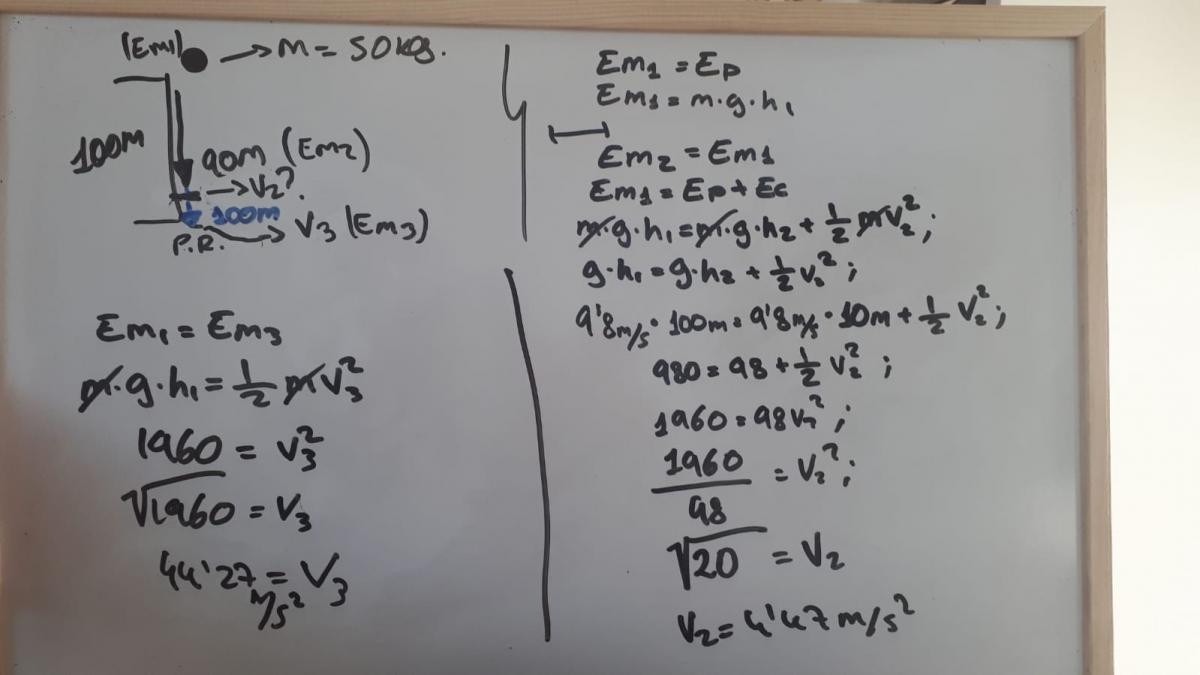 (Em1) → M = 50kg.
100m
90m (Em2)
→ V2?
100m
P.R. → V3 (Em3)
Em1 = Em3
m·g·h1 = 1/2 m V3²
1960 = V3²
√1960 = V3
44'27 = V3
m/s²
Em1 = Ep
Em1 = m·g·h1
Em2 = Em1
Em1 = Ep + Ec
m·g·h1 = m·g·h2 + 1/2 m V2²;
g·h1 = g·h2 + 1/2 V2²;
9'8m/s · 100m = 9'8m/s · 10m + 1/2 V2²;
980 = 98 + 1/2 V2²;
1960 = 98V2²;
1960/98 = V2²;
√20 = V2
V2 = 4'47 m/s²